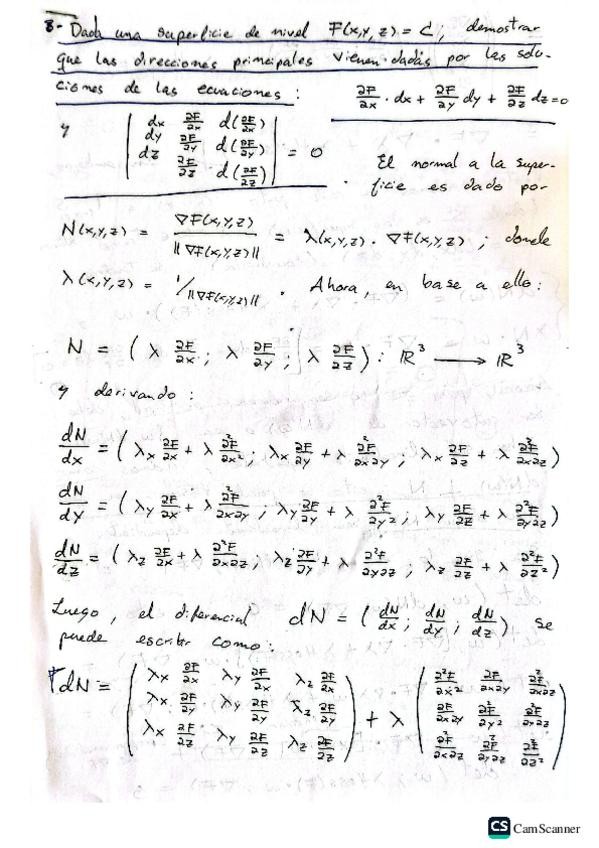 8- Dada una superficie de nivel F(x,y,z) = C; demostrar
que las direcciones principales vienen dadas por las solu-
ciones de las ecuaciones: ∂F/∂x · dx + ∂F/∂y dy + ∂F/∂z dz = 0
y | dx ∂F/∂x d(∂F/∂x) |
| dy ∂F/∂y d(∂F/∂y) | = 0
| dz ∂F/∂z d(∂F/∂z) |
. El normal a la super-
ficie es dado por
N(x,y,z) = ∇F(x,y,z) / ||∇F(x,y,z)|| = λ(x,y,z) · ∇F(x,y,z) ; donde
λ(x,y,z) = 1/||∇F(x,y,z)|| . Ahora, en base a ello:
N = (λ ∂F/∂x ; λ ∂F/∂y ; λ ∂F/∂z) : ℝ³ ⟶ ℝ³
y derivando:
dN/dx = (λx ∂F/∂x + λ ∂²F/∂x² ; λx ∂F/∂y + λ ∂²F/∂x∂y ; λx ∂F/∂z + λ ∂²F/∂x∂z)
dN/dy = (λy ∂F/∂x + λ ∂²F/∂x∂y ; λy ∂F/∂y + λ ∂²F/∂y² ; λy ∂F/∂z + λ ∂²F/∂y∂z)
dN/dz = (λz ∂F/∂x + λ ∂²F/∂x∂z ; λz ∂F/∂y + λ ∂²F/∂y∂z ; λz ∂F/∂z + λ ∂²F/∂z²)
Luego, el diferencial dN = (dN/dx ; dN/dy ; dN/dz) se
puede escribir como:
dN = ( λx ∂F/∂x λy ∂F/∂x λz ∂F/∂x ) + λ ( ∂²F/∂x² ∂F/∂x∂y ∂²F/∂x∂z )
( λx ∂F/∂y λy ∂F/∂y λz ∂F/∂y ) ( ∂F/∂x∂y ∂²F/∂y² ∂²F/∂y∂z )
( λx ∂F/∂z λy ∂F/∂z λz ∂F/∂z ) ( ∂²F/∂x∂z ∂²F/∂y∂z ∂²F/∂z² )
CS CamScanner